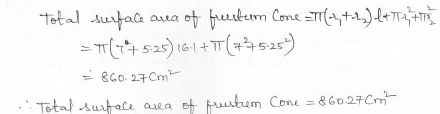 Total surface area of frustum Cone = π(r₁+r₂)l+πr₁²+πr₂²
= π(7+5.25)16.1+π(7²+5.25²)
= 860.27Cm²
∴ Total surface area of frustum Cone = 860.27Cm²